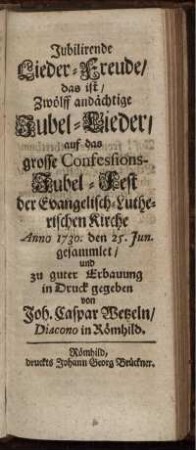 Jubilirende
Lieder-Freude/
das ist/
Zwölff andächtige
Jubel-Lieder/
auf das
grosse Confessions-
Jubel-Fest
der Evangelisch-Luthe-
rischen Kirche
Anno 1730. den 25. Jun.
gesammlet/
und
zu guter Erbauung
in Druck gegeben
von
Joh. Caspar Wetzeln/
Diacono in Römhild.
Römhild,
druckts Johann Georg Brückner.